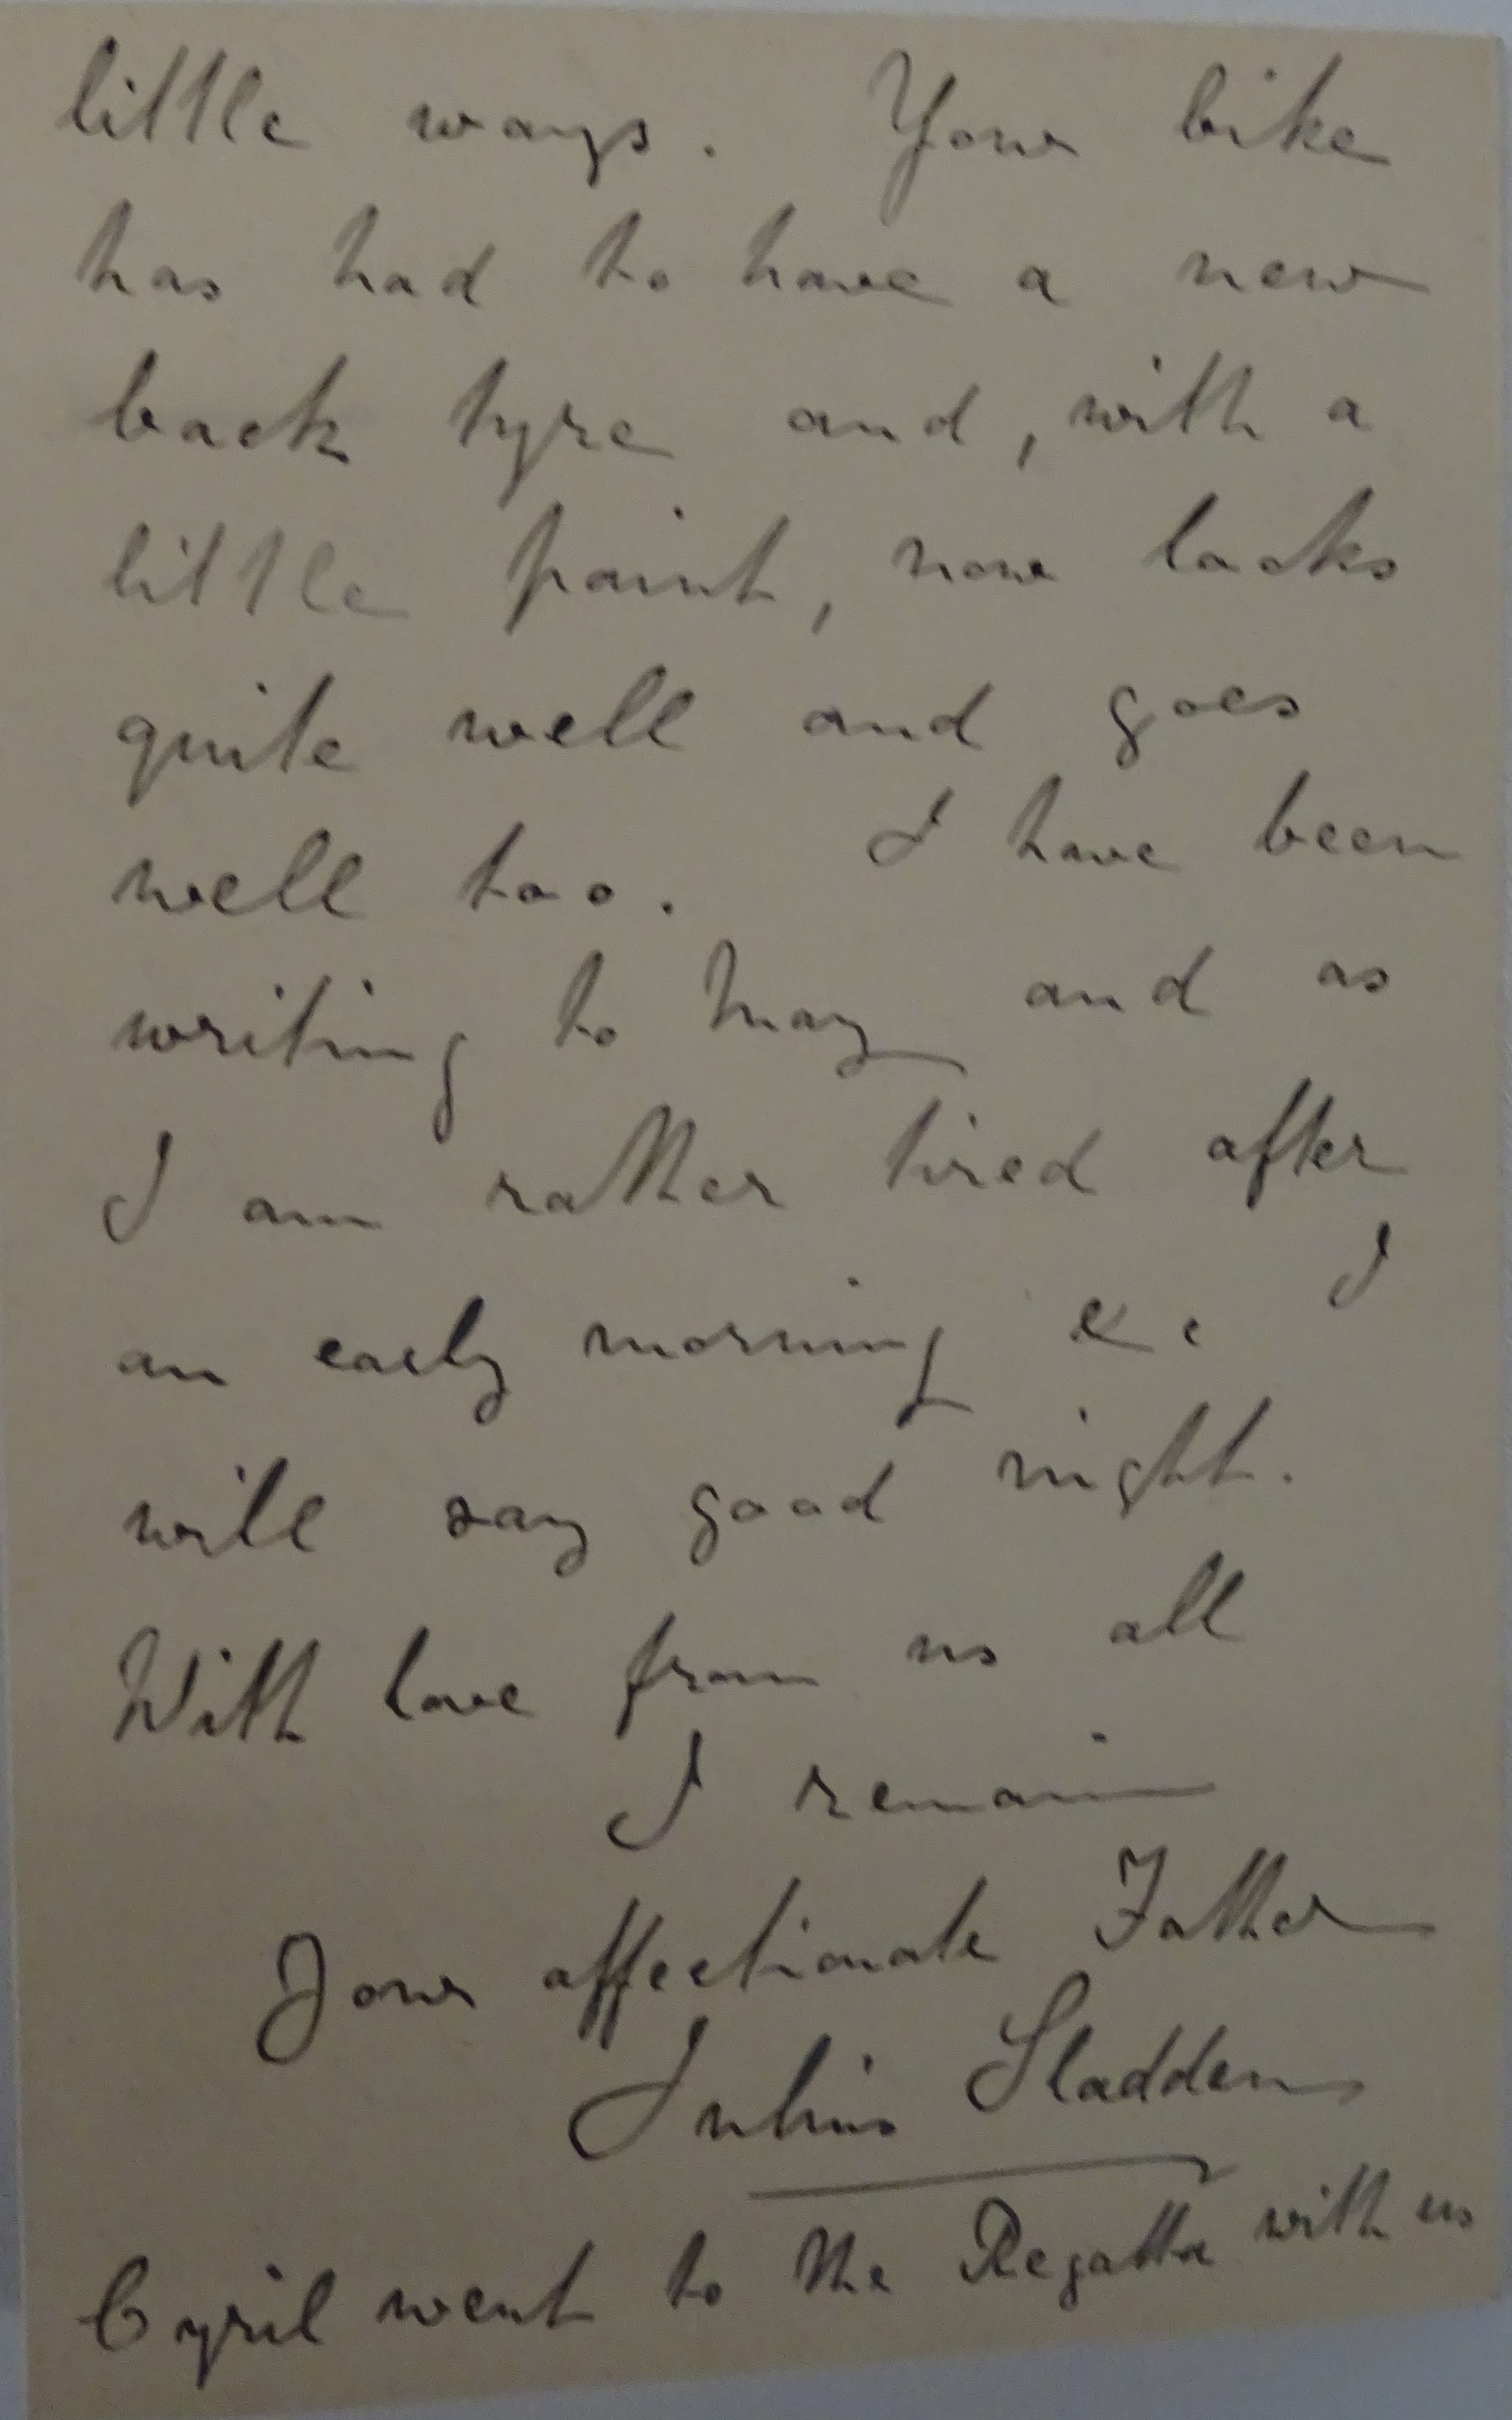 little ways. Your bike
has had to have a new
back tyre and, with a
little paint, now looks
quite well and goes
well too. I have been
writing to May and as
I am rather tired after
an early morning &c I
will say good night.
With love from us all
I remain
Your affectionate Father
Julius Sladden
Cyril went to the Regatta with us